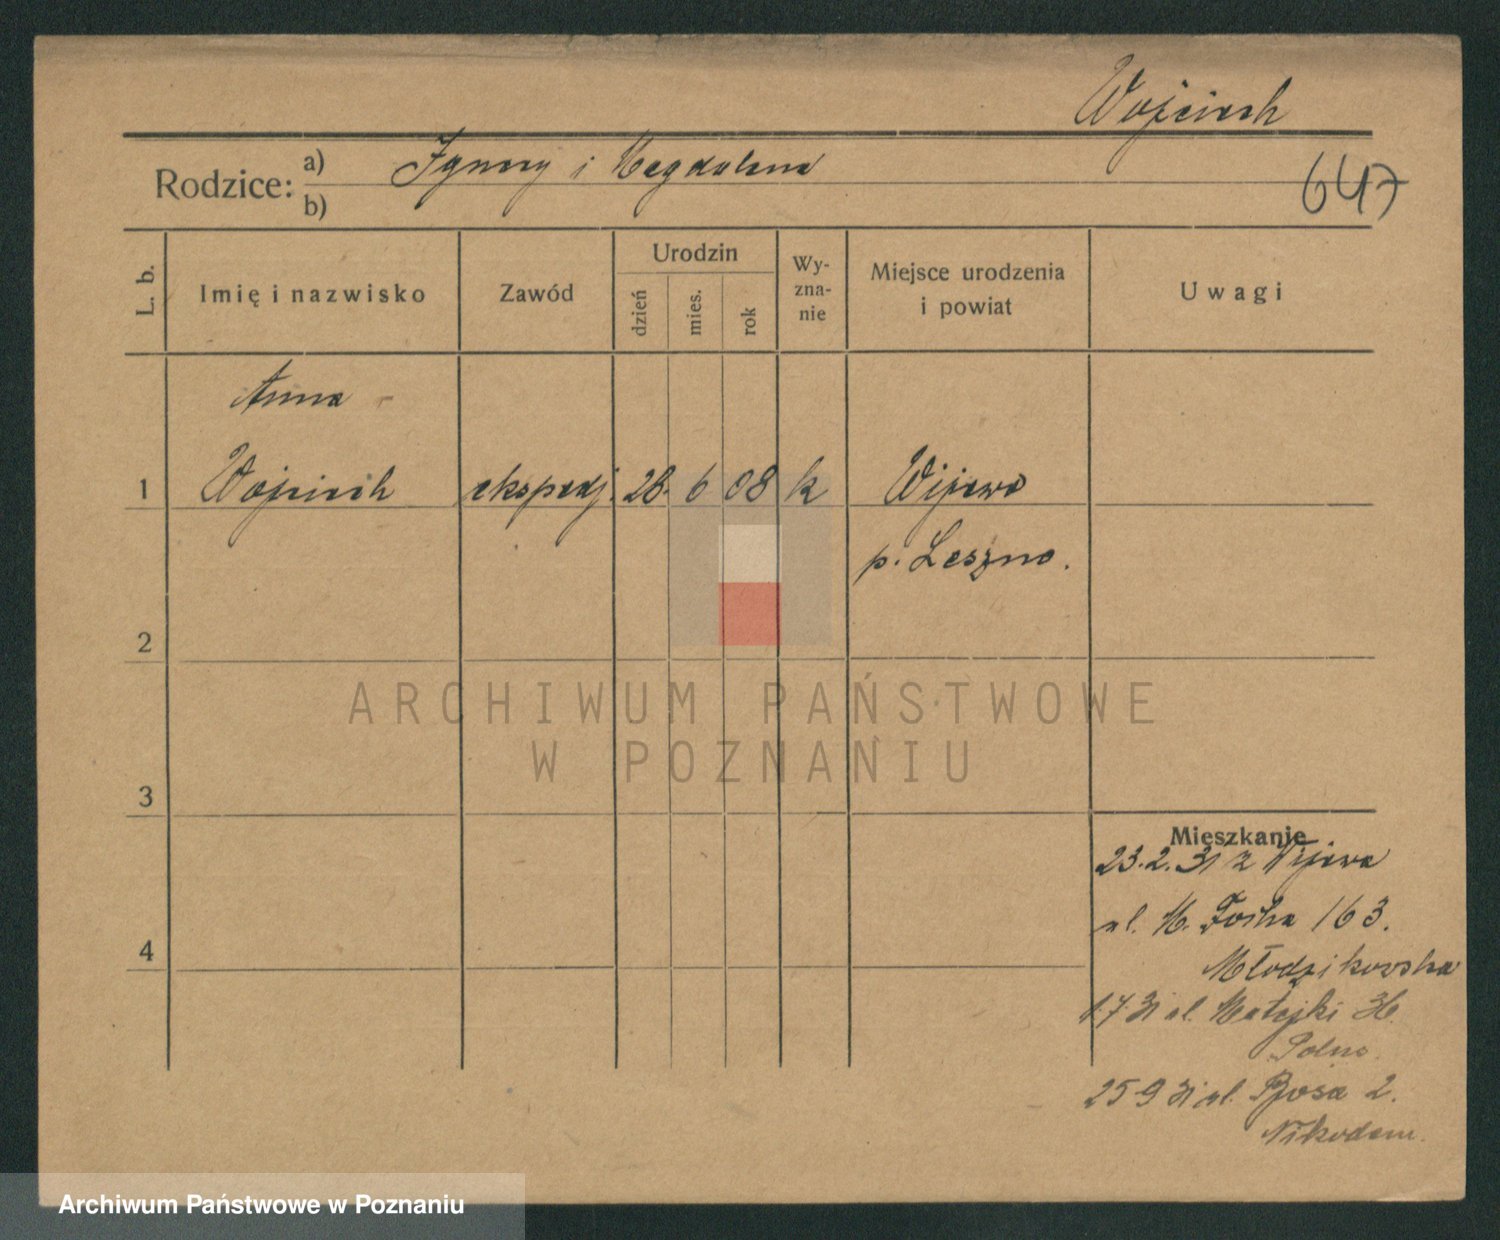 Wojciech
Rodzice: a) Ignacy i Magdalena
b)
647
L. b. Imię i nazwisko Zawód Urodzin dzień mies. rok Wy-zna-nie Miejsce urodzenia i powiat Uwagi
Anna
1 Wojciech ekspedj. 28. 6 08 k Wijewo
p. Leszno.
2
3
4
Mieszkanie
23.2.31 z Wijewa
ul. M. Focha 163.
Młodzikowska
1.7.31 ul. Matejki
Polno.
25 9 31 ul. 2.
Nikodem.
ARCHIWUM PAŃSTWOWE
W POZNANIU
Archiwum Państwowe w Poznaniu